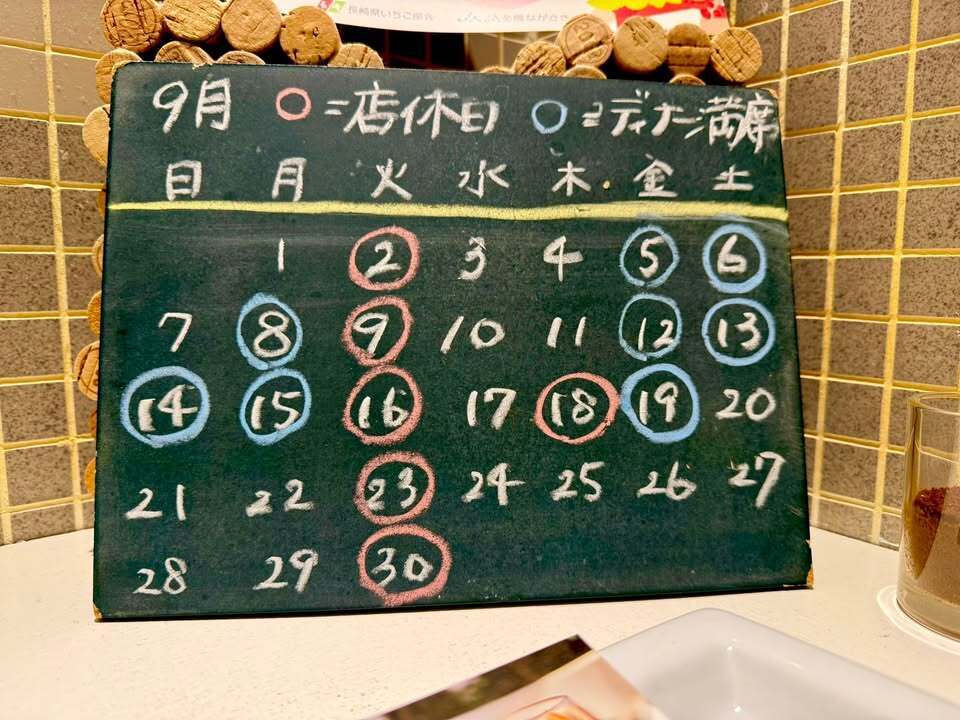 9月 ○=店休日 ○=ディナー満席
日 月 火 水 木 金 土
1 2 3 4 5 6
7 8 9 10 11 12 13
14 15 16 17 18 19 20
21 22 23 24 25 26 27
28 29 30